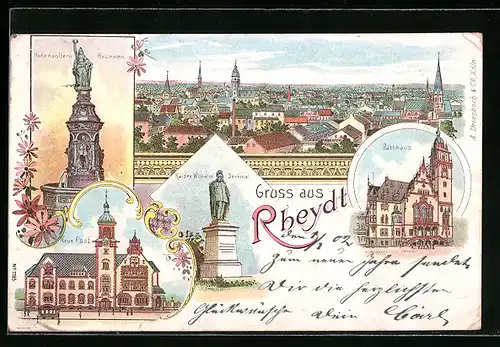 Hohenzollern Brunnen
Kaiser Wilhelm Denkmal
Rathhaus
Neue Post
Gruss aus
Rheydt
den 2/1 02
Zum neuen Jahre sendet
Dir die herzlichsten
Glückwünsche Dein Carl